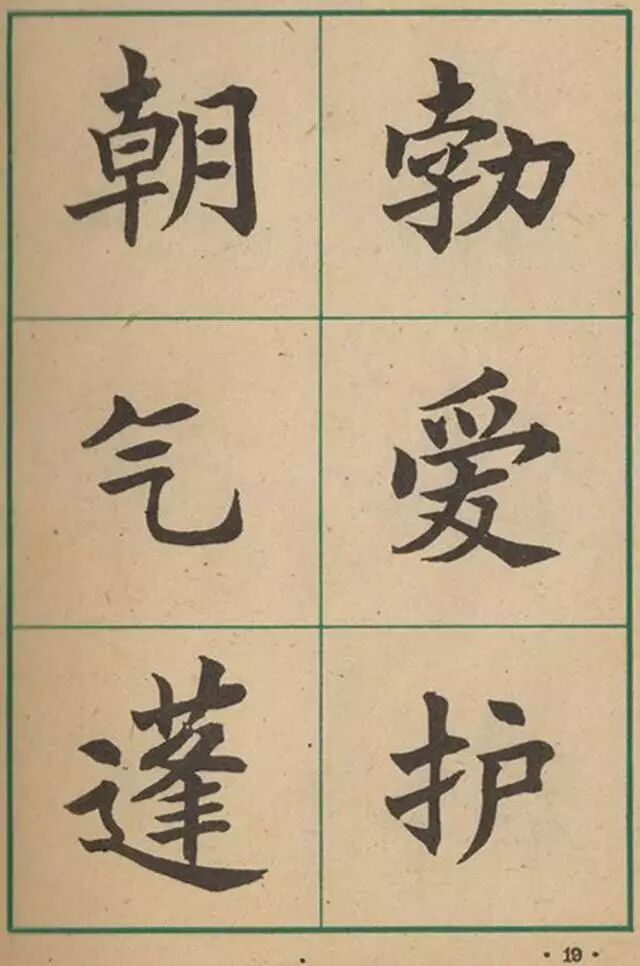 朝气蓬
勃爱护
· 19 ·